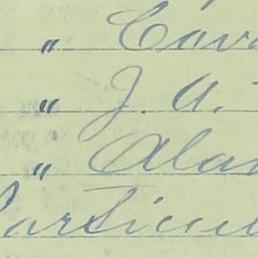 " Cova
" J. A.
" Alan
Particul